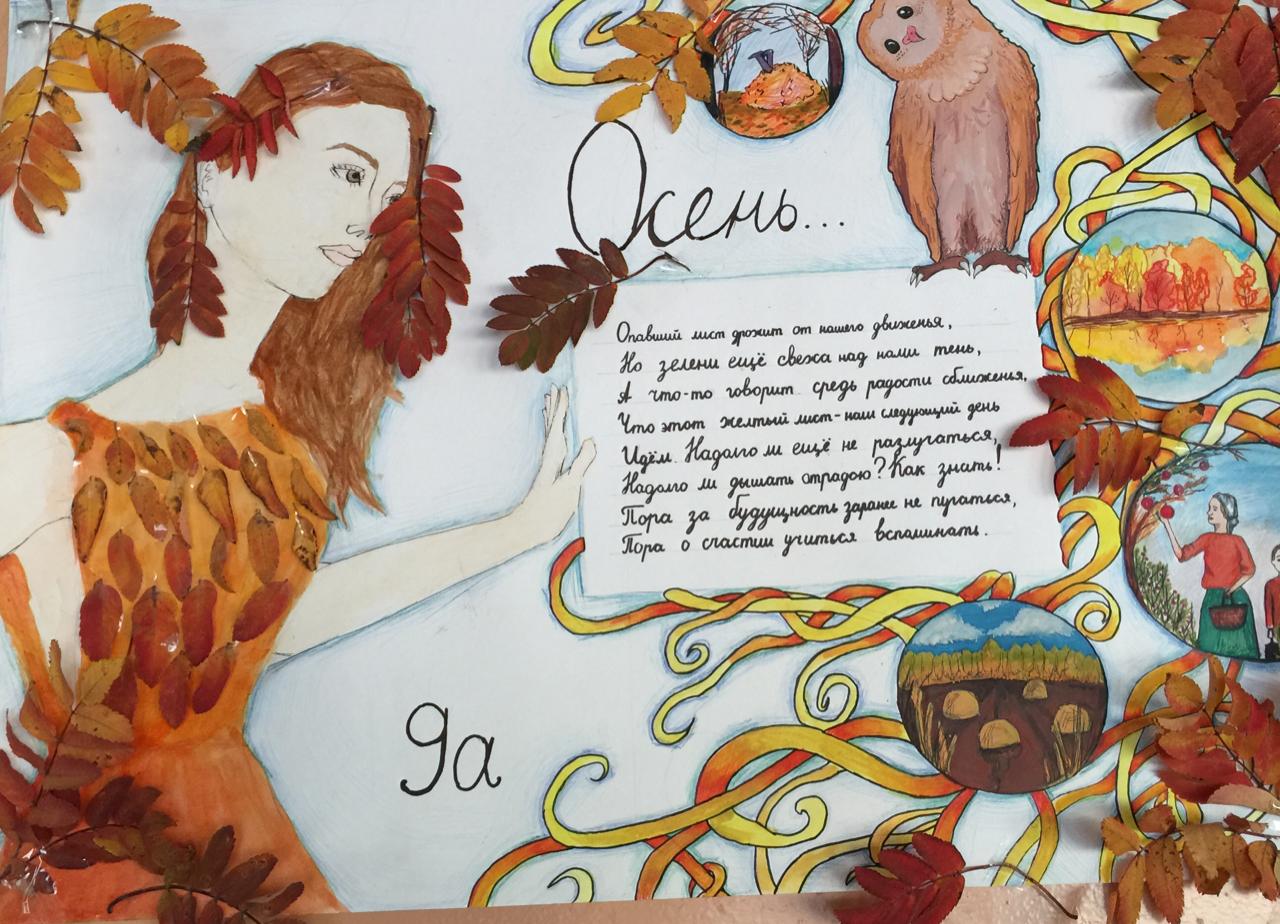 Осень...
Опавший лист дрожит от нашего движенья,
Но зелени ещё свежа над нами тень,
А что-то говорит средь радости сближенья,
Что этот желтый лист-наш следующий день
Идём. Надолго ли ещё не разлучаться,
Надолго ли дышать отрадою? Как знать!
Пора за будущность заранее не пугаться,
Пора о счастии учиться вспоминать.
9а